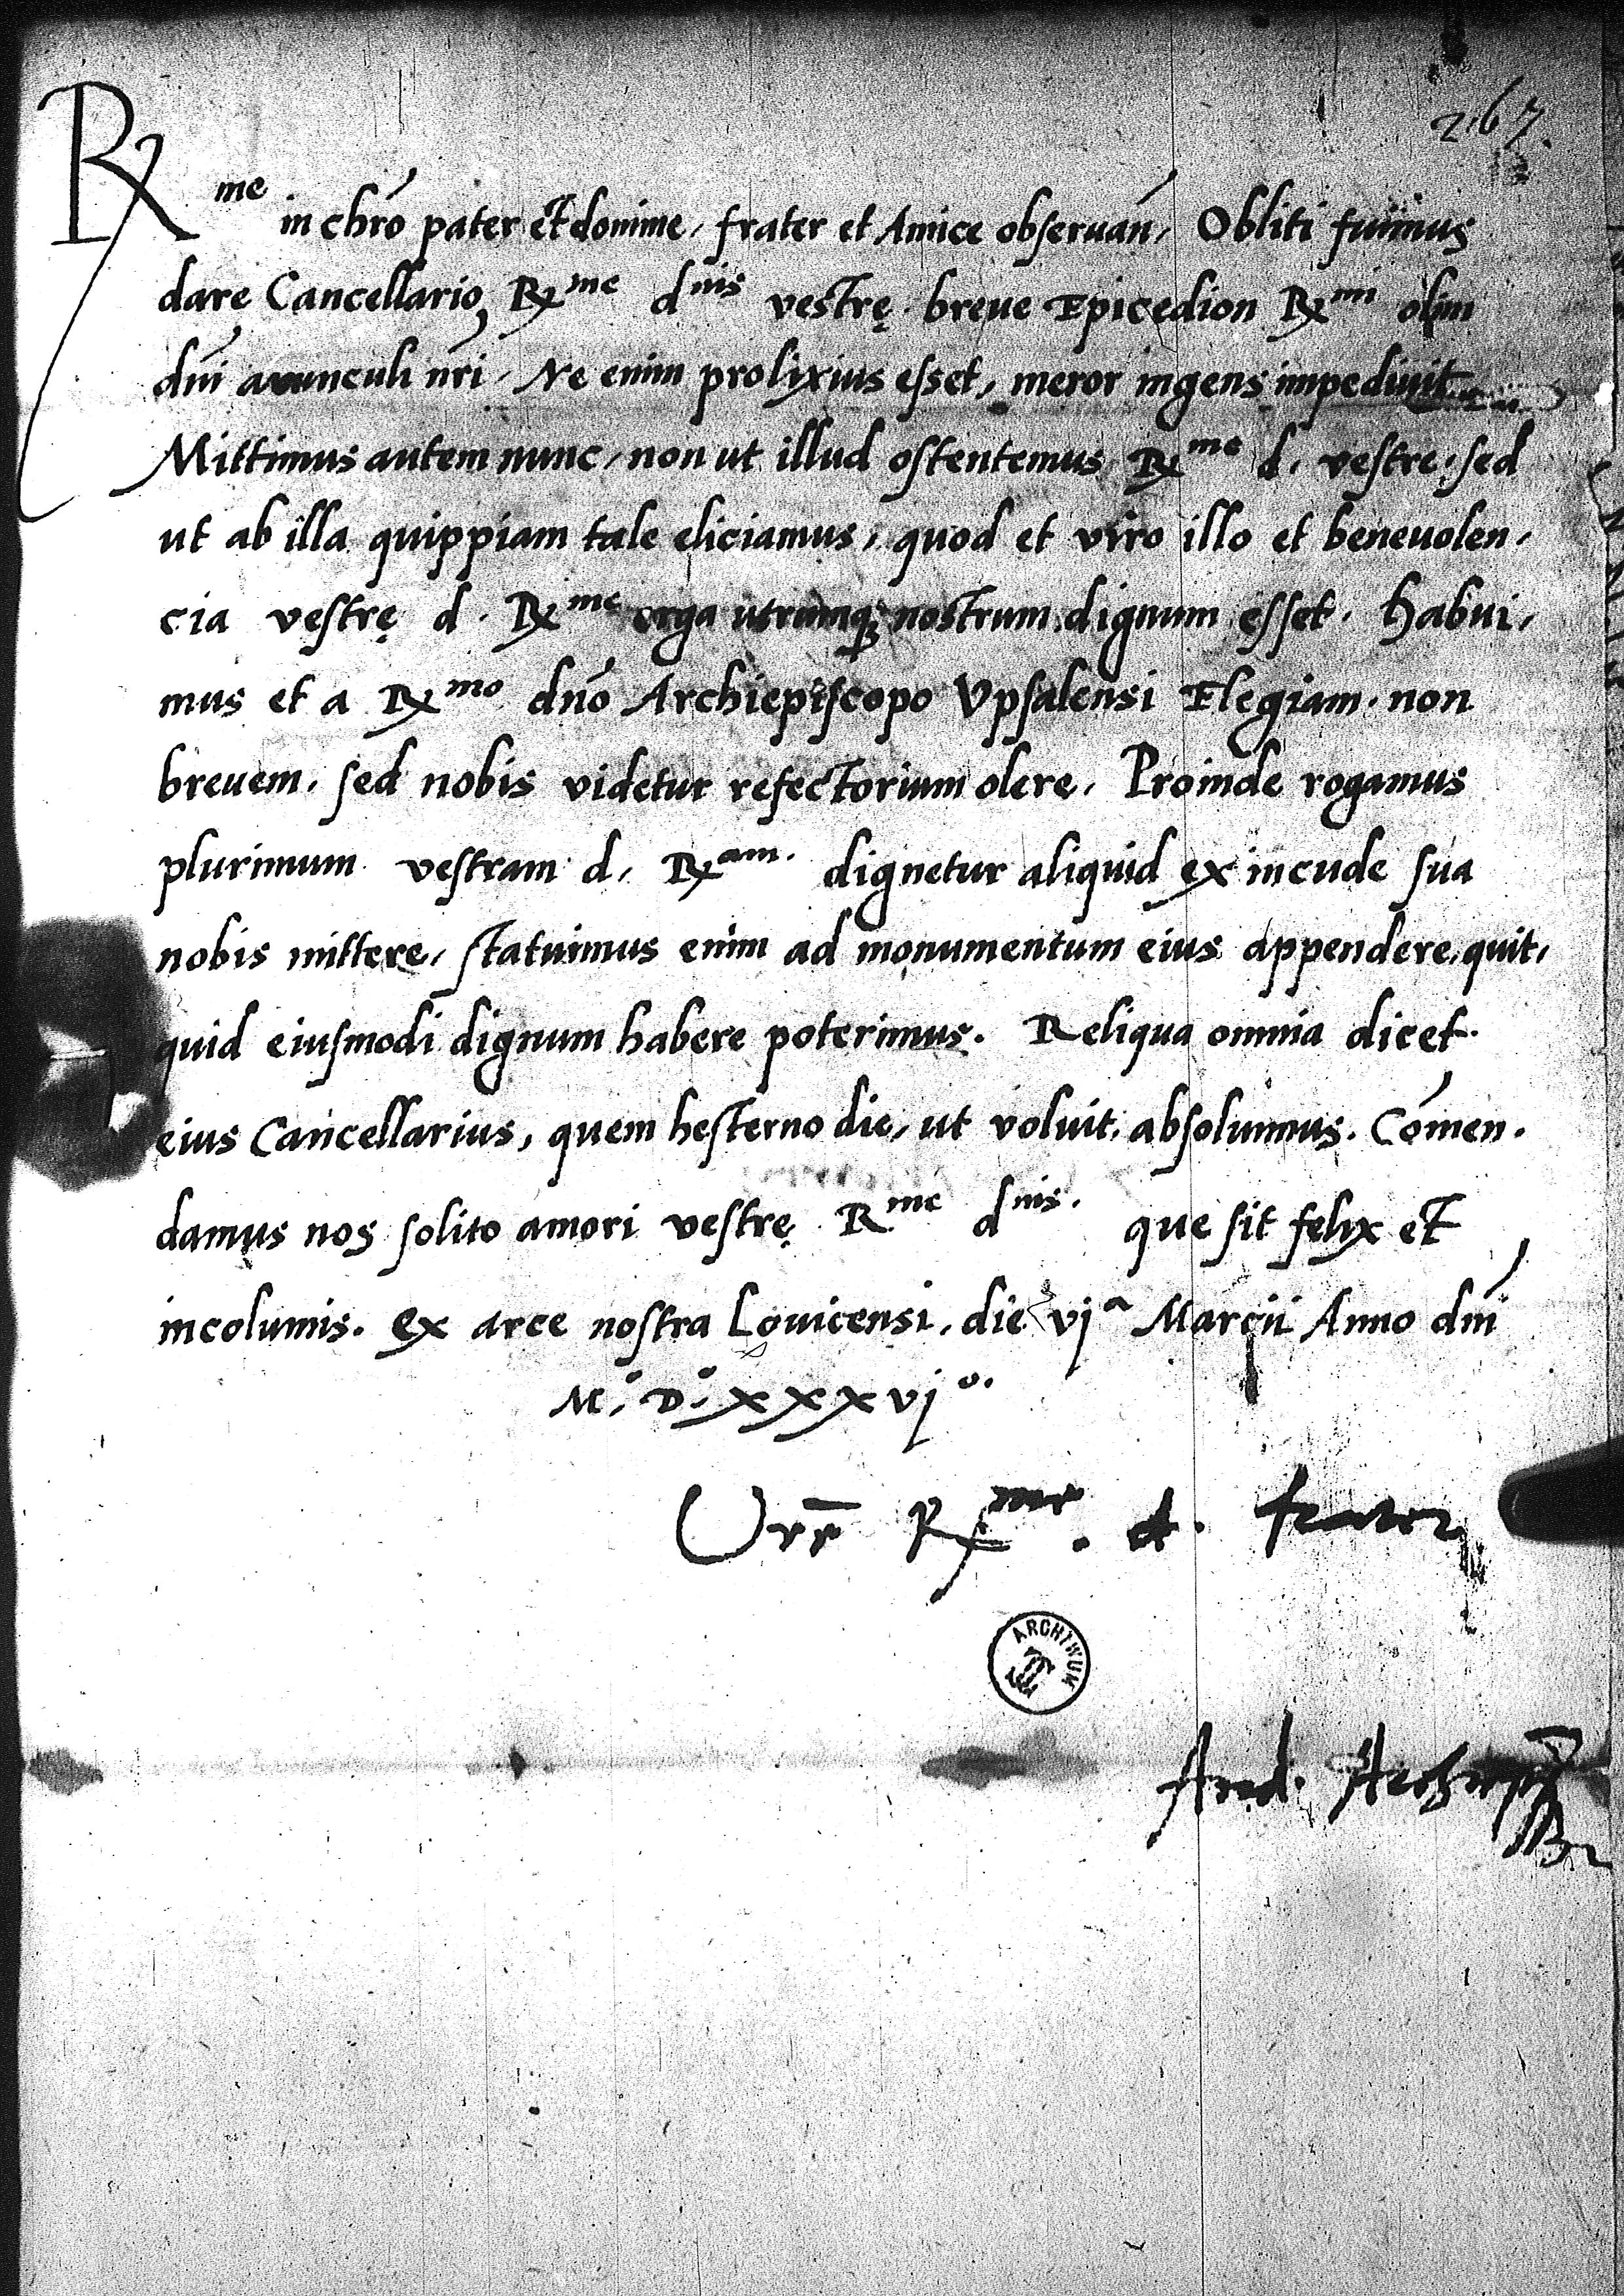 267.
Rme in chro pater et domine, frater et Amice obseruan, Obliti fuimus
dare Cancellario Rme dnis vestrę breue Epicedion Rmi olim
dni auunculi nri, Ne enim prolixius esset, meror ingens impediuit
Mittimus autem nunc, non ut illud ostentemus Rme d. vestre, sed
ut ab illa quippiam tale eliciamus, quod et viro illo et beneuolen,
cia vestrę d. Rme erga utrumq; nostrum dignum esset. Habui,
mus et a Rmo dno Archiepiscopo Vpsalensi Elegiam non
breuem, sed nobis videtur refectorium olere, Proinde rogamus
plurimum vestram d. Ram. dignetur aliquid ex incude sua
nobis mittere, statuimus enim ad monumentum eius appendere, quit,
quid eiusmodi dignum habere poterimus. Reliqua omnia dicet
eius Cancellarius, quem hesterno die, ut voluit, absoluimus. Comen.
damus nos solito amori vestrę Rme dnis. que sit felix et
incolumis. Ex arce nostra Louicensi, die vja Marcii Anno dni
Mo. Do. xxxvjo.
Vre Rme. d. frater
ARCHIWUM
And. Archiepus